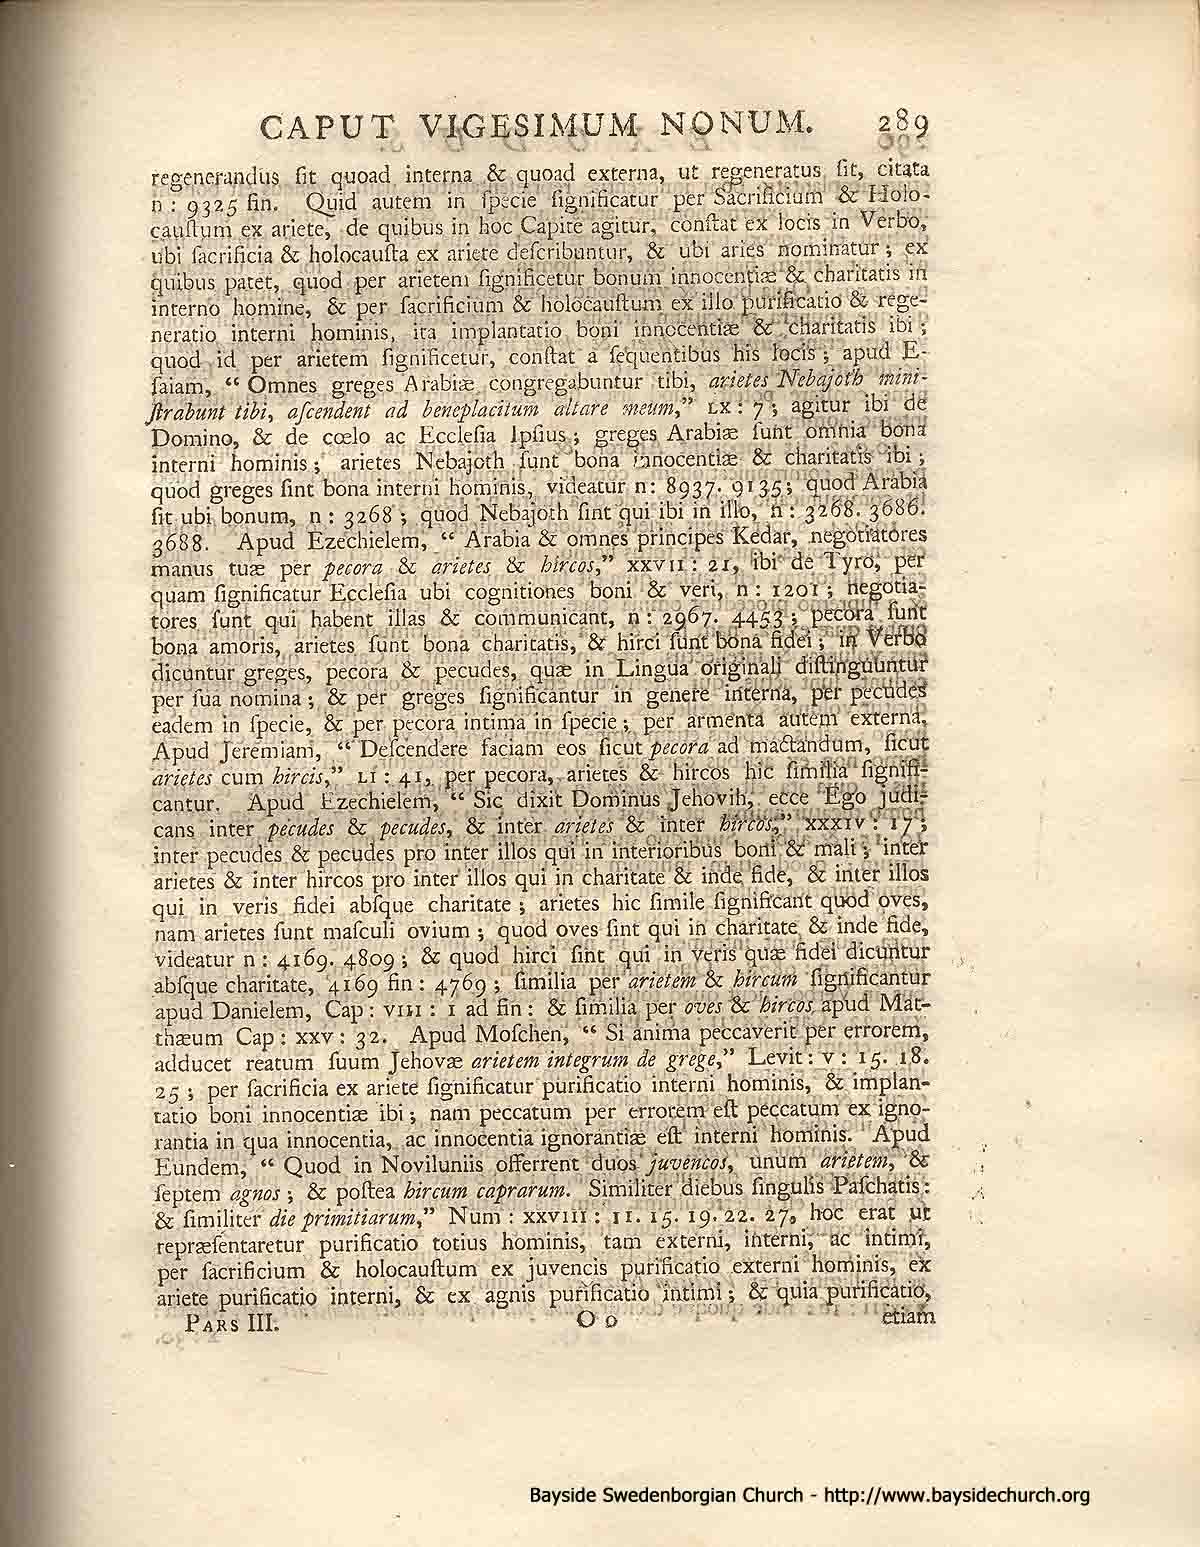 CAPUT VIGESIMUM NONUM. 289
regenerandus ſit quoad interna & quoad externa, ut regeneratus ſit, citata
n : 9325 fin. Quid autem in ſpecie ſignificatur per Sacrificium & Holo-
cauſtum ex ariete, de quibus in hoc Capite agitur, conſtat ex locis in Verbo,
ubi ſacrificia & holocauſta ex ariete deſcribuntur, & ubi aries nominatur ; ex
quibus patet, quod per arietem ſignificetur bonum innocentiæ & charitatis in
interno homine, & per ſacrificium & holocauſtum ex illo purificatio & rege-
neratio interni hominis, ita implantatio boni innocentiæ & charitatis ibi ;
quod id per arietem ſignificetur, conſtat a ſequentibus his locis ; apud E-
ſaiam, “ Omnes greges Arabiæ congregabuntur tibi, arietes Nebajoth mini-
ſtrabunt tibi, aſcendent ad beneplacitum altare meum,” LX : 7 ; agitur ibi de
Domino, & de cœlo ac Eccleſia Ipſius ; greges Arabiæ ſunt omnia bona
interni hominis ; arietes Nebajoth ſunt bona innocentiæ & charitatis ibi ;
quod greges ſint bona interni hominis, videatur n: 8937. 9135 ; quod Arabia
ſit ubi bonum, n : 3268 ; quod Nebajoth ſint qui ibi in illo, n : 3268. 3686.
3688. Apud Ezechielem, “ Arabia & omnes principes Kedar, negotiatores
manus tuæ per pecora & arietes & hircos,” XXVII : 21, ibi de Tyro, per
quam ſignificatur Eccleſia ubi cognitiones boni & veri, n : 1201 ; negotia-
tores ſunt qui habent illas & communicant, n : 2967. 4453 ; pecora ſunt
bona amoris, arietes ſunt bona charitatis, & hirci ſunt bona fidei ; in Verbo
dicuntur greges, pecora & pecudes, quæ in Lingua originali diſtinguuntur
per ſua nomina ; & per greges ſignificantur in genere interna, per pecudes
eadem in ſpecie, & per pecora intima in ſpecie ; per armenta autem externa.
Apud Jeremiam, “ Deſcendere faciam eos ſicut pecora ad mactandum, ſicut
arietes cum hircis,” LI : 41, per pecora, arietes & hircos hic ſimilia ſignifi-
cantur. Apud Ezechielem, “ Sic dixit Dominus Jehovih, ecce Ego judi-
cans inter pecudes & pecudes, & inter arietes & inter hircos,” XXXIV : 17 ;
inter pecudes & pecudes pro inter illos qui in interioribus boni & mali ; inter
arietes & inter hircos pro inter illos qui in charitate & inde fide, & inter illos
qui in veris fidei abſque charitate ; arietes hic ſimile ſignificant quod oves,
nam arietes ſunt maſculi ovium ; quod oves ſint qui in charitate & inde fide,
videatur n : 4169. 4809 ; & quod hirci ſint qui in veris quæ fidei dicuntur
abſque charitate, 4169 fin : 4769 ; ſimilia per arietem & hircum ſignificantur
apud Danielem, Cap : VIII : 1 ad fin : & ſimilia per oves & hircos apud Mat-
thæum Cap : XXV : 32. Apud Moſchen, “ Si anima peccaverit per errorem,
adducet reatum ſuum Jehovæ arietem integrum de grege,” Levit : V : 15. 18.
25 ; per ſacrificia ex ariete ſignificatur purificatio interni hominis, & implan-
tatio boni innocentiæ ibi ; nam peccatum per errorem eſt peccatum ex igno-
rantia in qua innocentia, ac innocentia ignorantiæ eſt interni hominis. Apud
Eundem, “ Quod in Noviluniis offerrent duos juvencos, unum arietem, &
ſeptem agnos ; & poſtea hircum caprarum. Similiter diebus ſingulis Paſchatis :
& ſimiliter die primitiarum,” Num : XXVIII : 11. 15. 19. 22. 27, hoc erat ut
repræſentaretur purificatio totius hominis, tam externi, interni, ac intimi,
per ſacrificium & holocauſtum ex juvencis purificatio externi hominis, ex
ariete purificatio interni, & ex agnis purificatio intimi ; & quia purificatio,
PARS III. O o etiam
Bayside Swedenborgian Church - http://www.baysidechurch.org